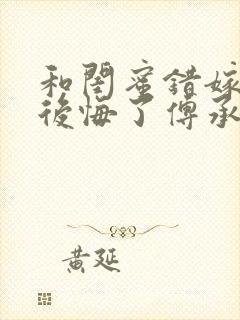 和閨蜜錯嫁
後悔了傅承
黃延